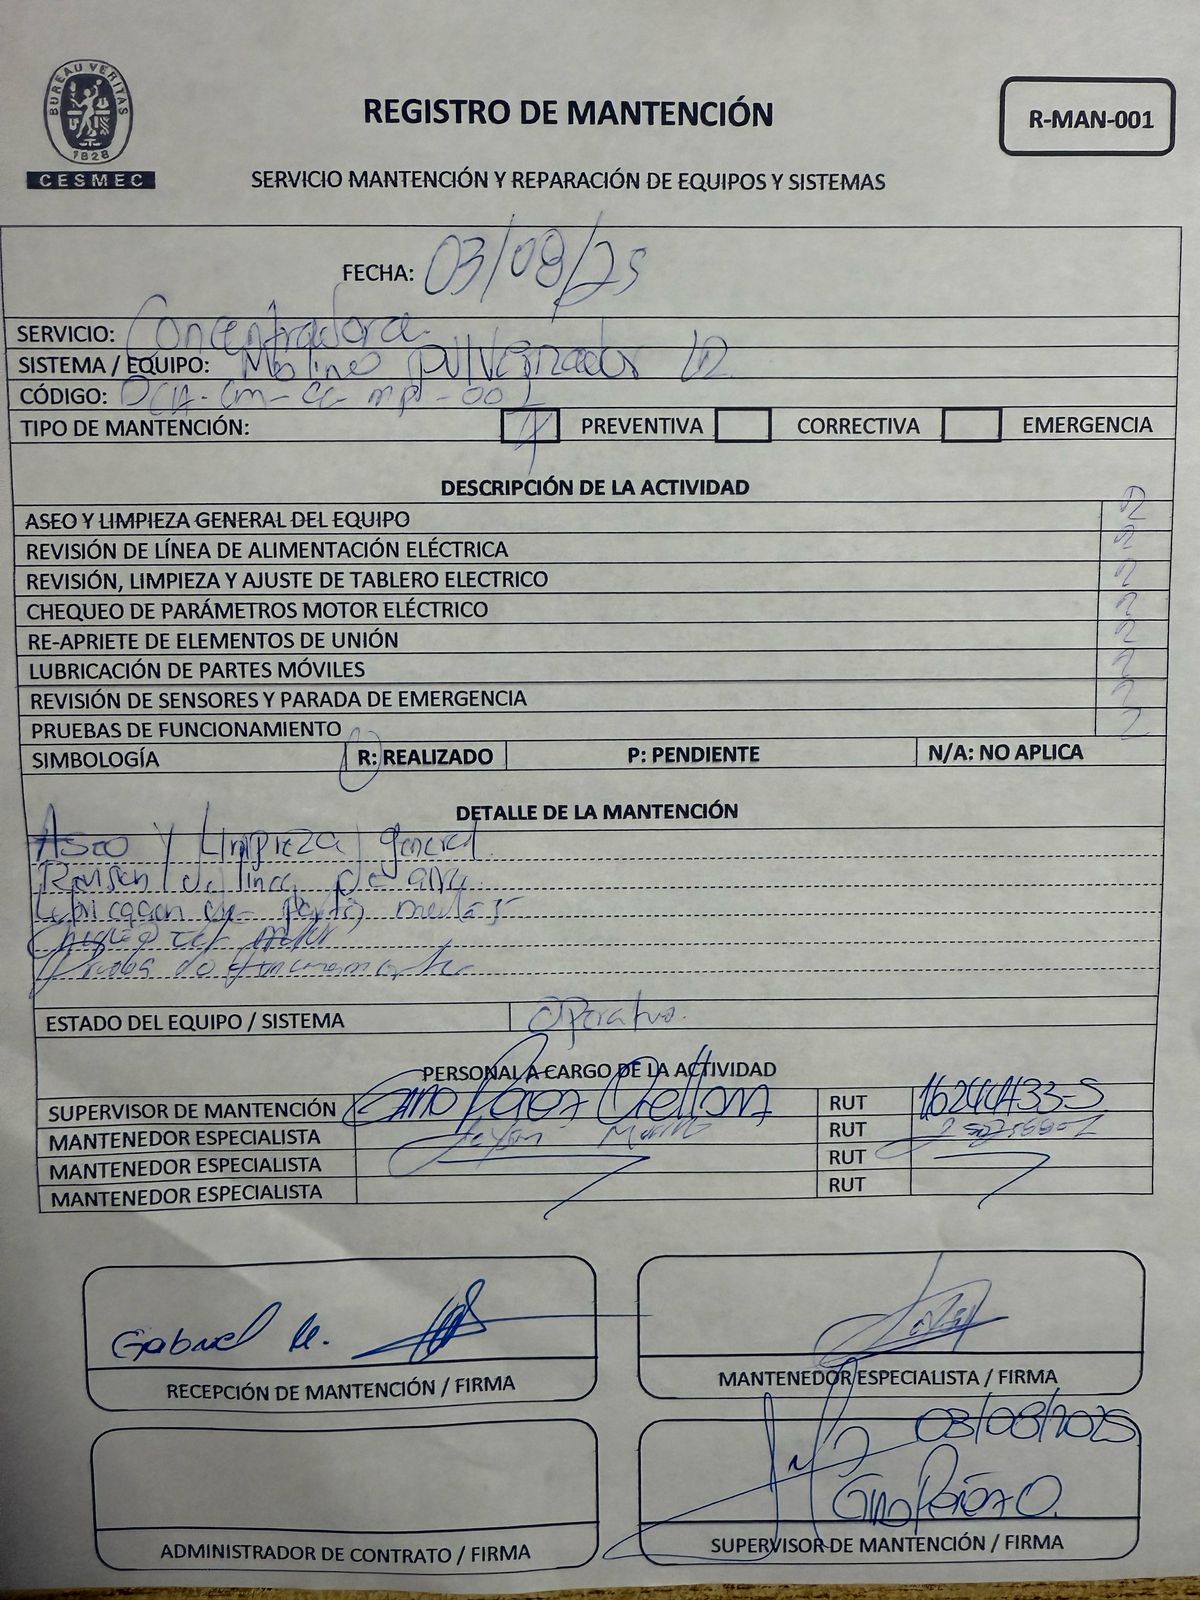 BUREAU VERITAS
1828
CESMEC
REGISTRO DE MANTENCIÓN
R-MAN-001
SERVICIO MANTENCIÓN Y REPARACIÓN DE EQUIPOS Y SISTEMAS
FECHA: 03/08/25
SERVICIO: Concentradora
SISTEMA / EQUIPO: Molino pulverizador
CÓDIGO:
TIPO DE MANTENCIÓN: PREVENTIVA CORRECTIVA EMERGENCIA
DESCRIPCIÓN DE LA ACTIVIDAD
ASEO Y LIMPIEZA GENERAL DEL EQUIPO R
REVISIÓN DE LÍNEA DE ALIMENTACIÓN ELÉCTRICA R
REVISIÓN, LIMPIEZA Y AJUSTE DE TABLERO ELECTRICO R
CHEQUEO DE PARÁMETROS MOTOR ELÉCTRICO R
RE-APRIETE DE ELEMENTOS DE UNIÓN R
LUBRICACIÓN DE PARTES MÓVILES R
REVISIÓN DE SENSORES Y PARADA DE EMERGENCIA R
PRUEBAS DE FUNCIONAMIENTO R
SIMBOLOGÍA R: REALIZADO P: PENDIENTE N/A: NO APLICA
DETALLE DE LA MANTENCIÓN
Aseo y Limpieza general
Revision de linea de
Lubricacion de partes
Chequeo del motor
Prueba de funcionamiento
ESTADO DEL EQUIPO / SISTEMA Operativo.
PERSONAL A CARGO DE LA ACTIVIDAD
SUPERVISOR DE MANTENCIÓN Gino Pérez Orellana RUT 16244133-5
MANTENEDOR ESPECIALISTA RUT
MANTENEDOR ESPECIALISTA RUT
MANTENEDOR ESPECIALISTA RUT
Gabriel
RECEPCIÓN DE MANTENCIÓN / FIRMA
MANTENEDOR ESPECIALISTA / FIRMA
03/08/2025
Gino Pérez O.
ADMINISTRADOR DE CONTRATO / FIRMA
SUPERVISOR DE MANTENCIÓN / FIRMA